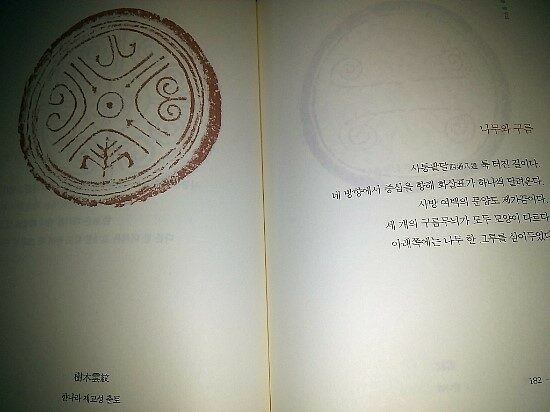 樹木雲紋
한나라 제교성 출토
나무와 구름
사통팔달四通八達 툭 터진 길이다.
네 방향에서 중심을 향해 화살표가 하나씩 달려온다.
사방 여백의 문양도 제가끔이다.
세 개의 구름무늬가 모두 모양이 다르다
아래쪽에는 나무 한 그루를 심어두었다
182